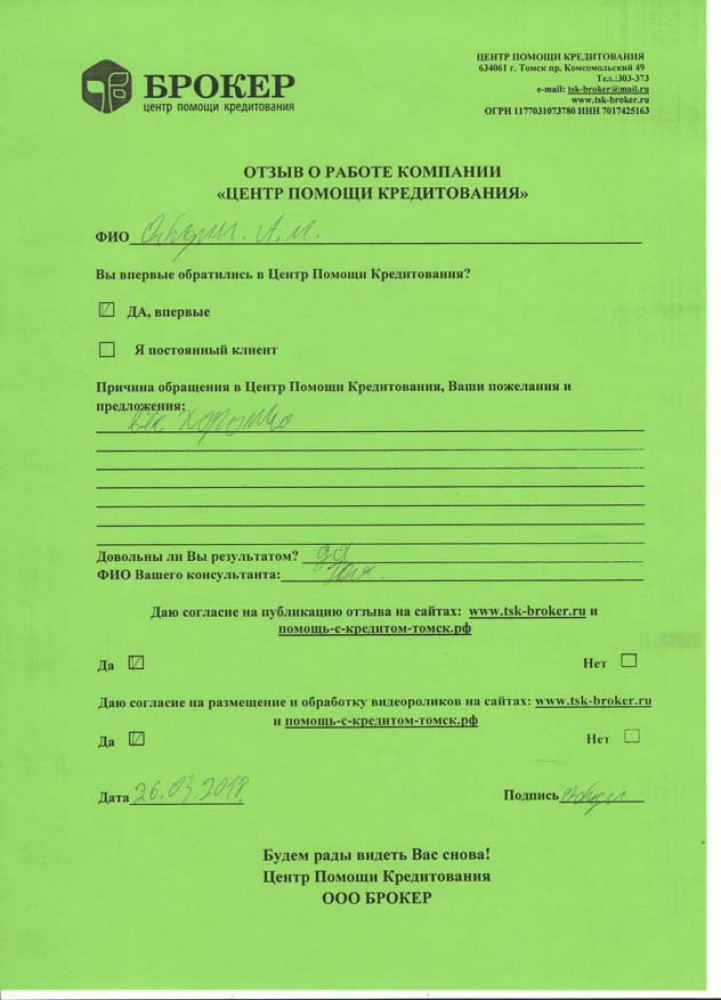 БРОКЕР
центр помощи кредитования
ЦЕНТР ПОМОЩИ КРЕДИТОВАНИЯ
634061 г. Томск пр. Комсомольский 49
Тел.:303-373
e-mail: tsk-broker@mail.ru
www.tsk-broker.ru
ОГРН 1177031073780 ИНН 7017425163
ОТЗЫВ О РАБОТЕ КОМПАНИИ
«ЦЕНТР ПОМОЩИ КРЕДИТОВАНИЯ»
ФИО А. И.
Вы впервые обратились в Центр Помощи Кредитования?
ДА, впервые
Я постоянный клиент
Причина обращения в Центр Помощи Кредитования, Ваши пожелания и
предложения:
хорошо
Довольны ли Вы результатом? да
ФИО Вашего консультанта:
Даю согласие на публикацию отзыва на сайтах: www.tsk-broker.ru и
помощь-с-кредитом-томск.рф
Да Нет
Даю согласие на размещение и обработку видеороликов на сайтах: www.tsk-broker.ru
и помощь-с-кредитом-томск.рф
Да Нет
Дата 26.03.2018 Подпись
Будем рады видеть Вас снова!
Центр Помощи Кредитования
ООО БРОКЕР